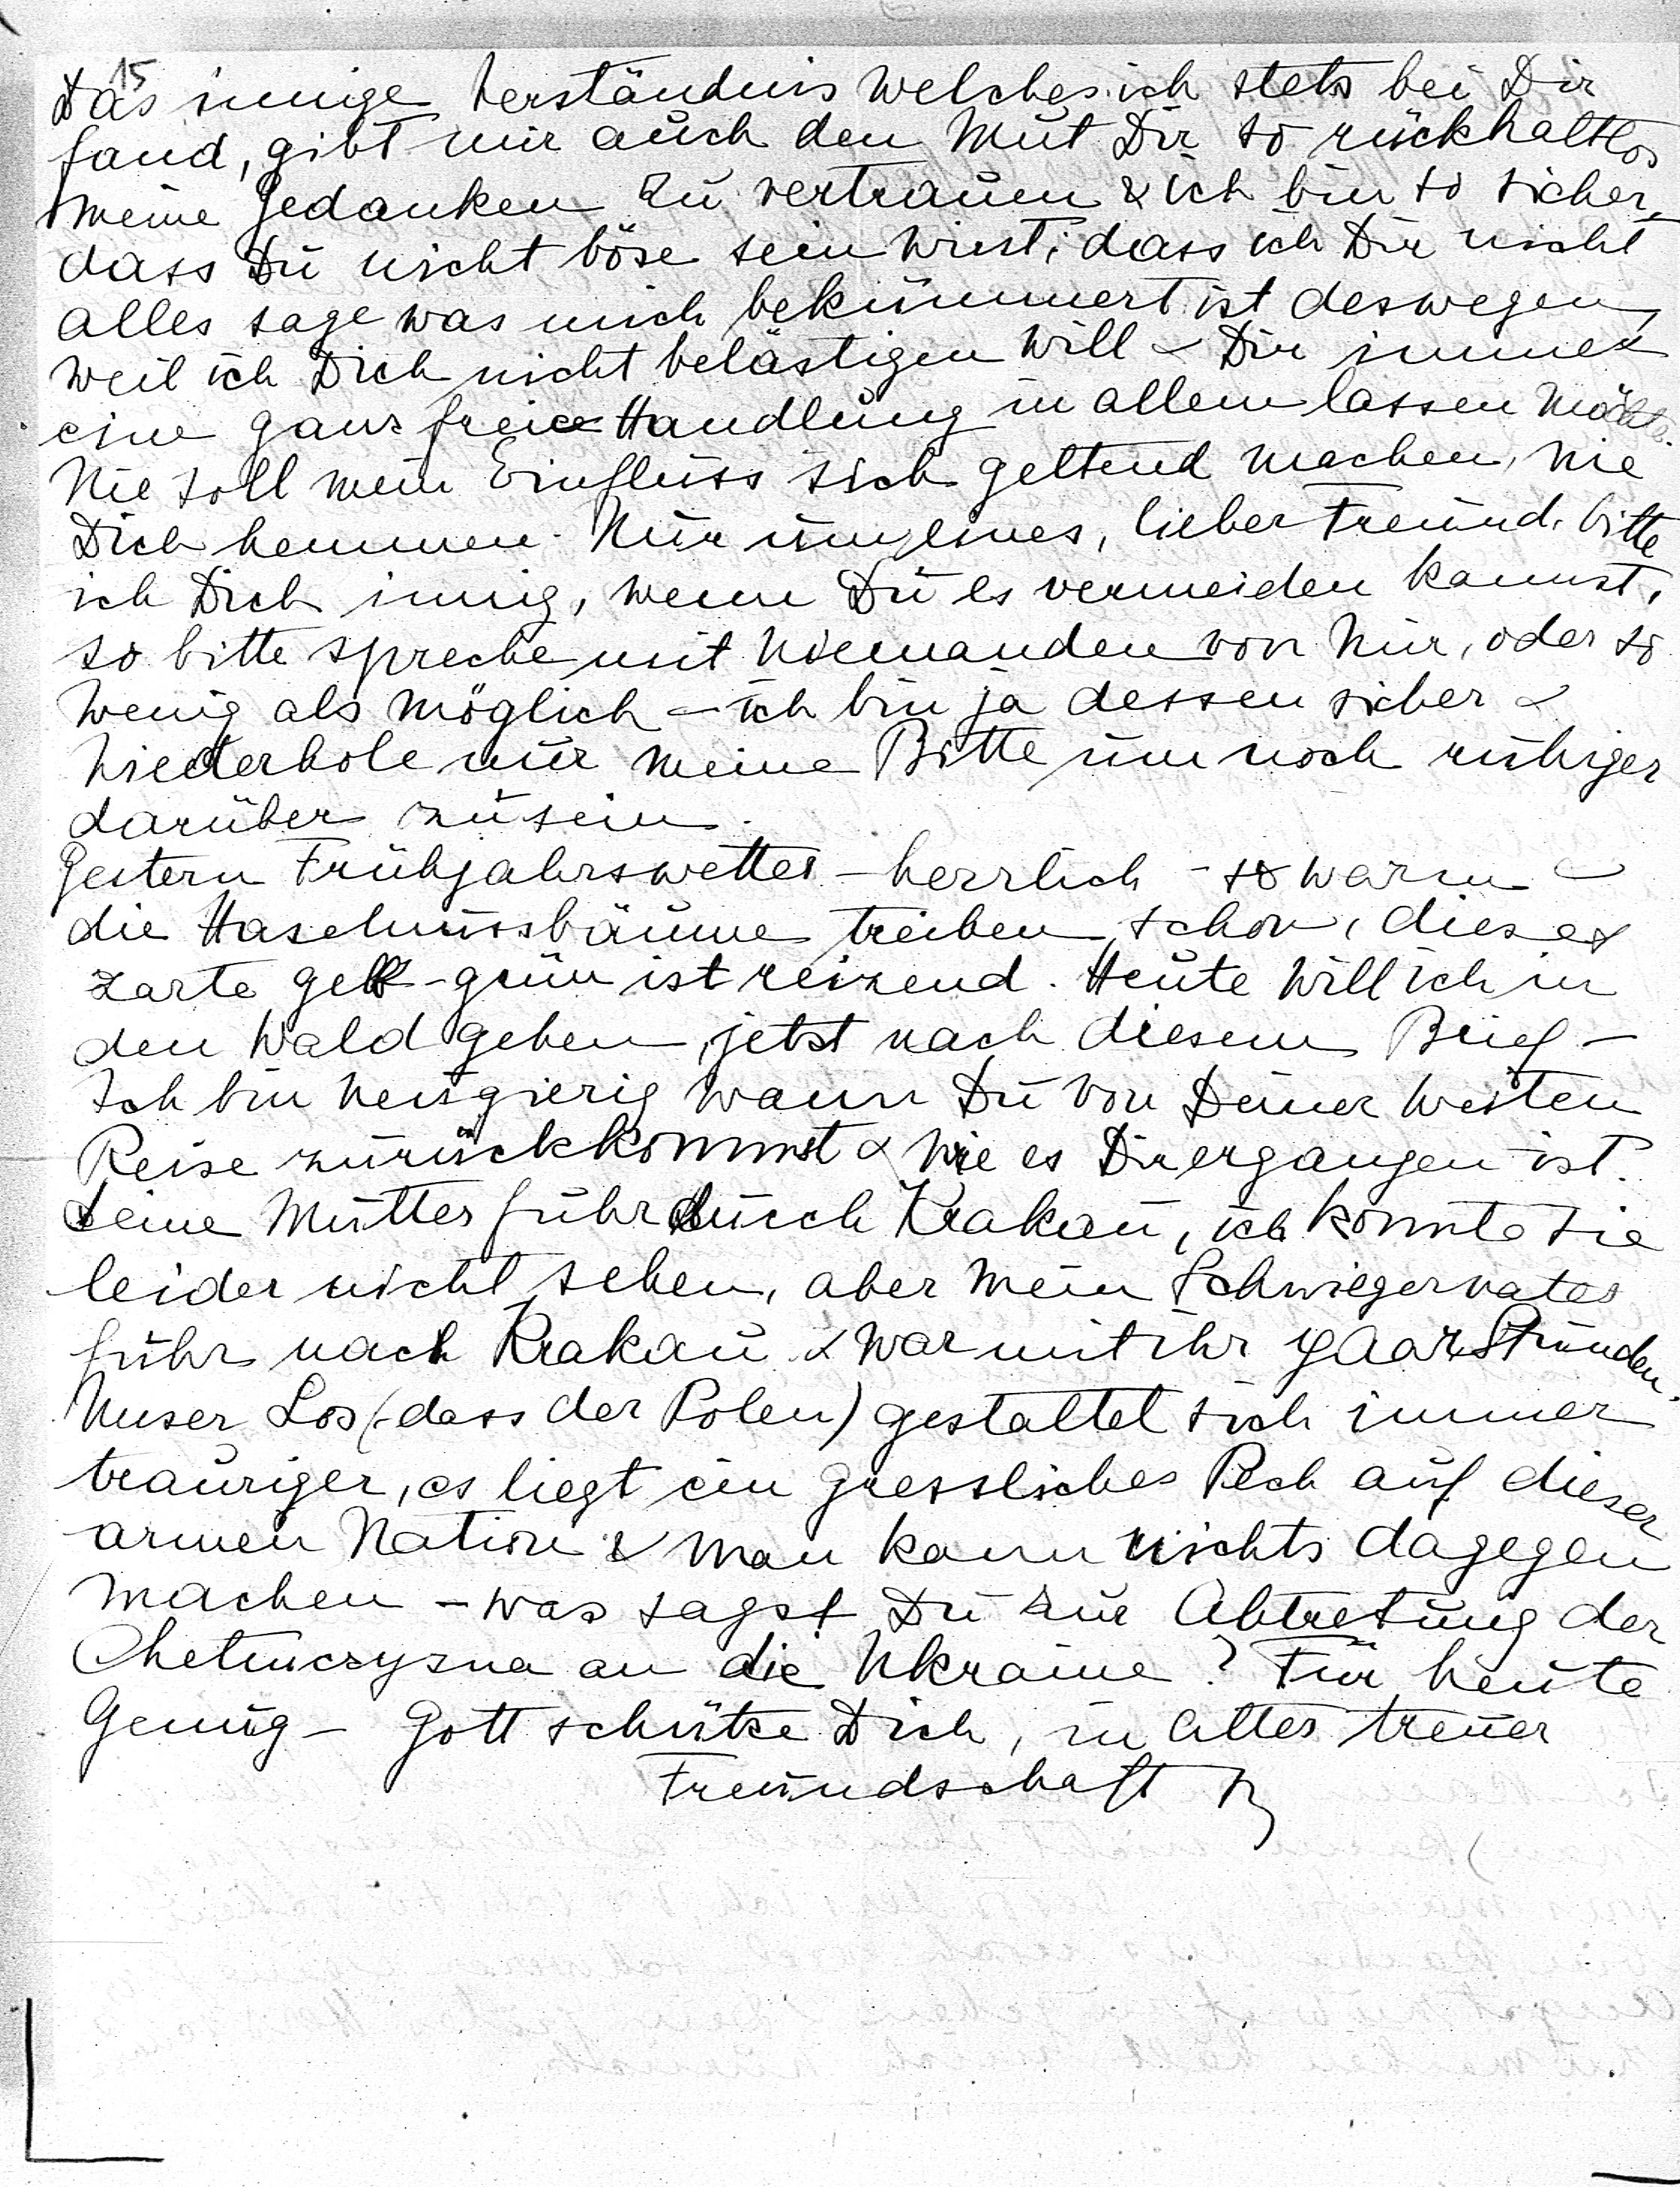 15
Das innige Verständnis welches ich stets bei Dir
fand, gibt mir auch den Mut Dir so rückhaltlos
meine Gedanken zu vertrauen & ich bin so sicher,
dass Du nicht böse sein wirst, dass ich Dir nicht
alles sage was mich bekümmert ist deswegen,
weil ich Dich nicht belästigen will & Dir immer
eine ganz freie Handlung in allem lassen möchte.
Nie soll mein Einfluss sich geltend machen, nie
Dich hemmen. Nur um eines, lieber Freund, bitte
ich Dich innig, wenn Du es vermeiden kannst,
so bitte spreche mit Niemanden von mir, oder so
wenig als möglich – ich bin ja dessen sicher &
wiederhole nur meine Bitte um noch ruhiger
darüber zu sein.
Gestern Frühjahrswetter – herrlich – so warm –
die Haselnussbäume treiben schon, dieses
zarte gelb-grün ist reizend. Heute will ich in
den Wald gehen, jetzt nach diesem Brief –
Ich bin neugierig wann Du von Deiner weiten
Reise zurückkommst & wie es Dir ergangen ist.
Deine Mutter fuhr durch Krakau, ich konnte sie
leider nicht sehen, aber mein Schwiegervater
fuhr nach Krakau & war mit ihr paar Stunden.
Unser Los (dass der Polen) gestaltet sich immer
trauriger, es liegt ein gressliches Pech auf dieser
armen Nation & man kann nichts dagegen
machen – was sagst Du zur Abtretung der
Chełmczyzna an die Ukraine? Für heute
Genug – Gott schütze Dich, in alter treuer
Freundschaft